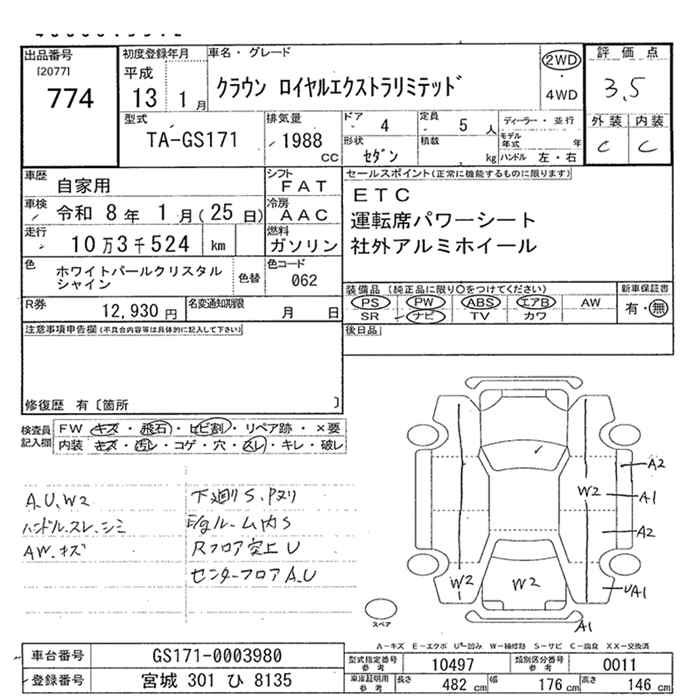 出品番号
[2077]
774
初度登録年月
平成
13 1 月
車名・グレード
クラウン ロイヤルエクストラリミテッド
2WD
・
4WD
評価点
3.5
外装 内装
C C
型式
TA-GS171
排気量
1988
CC
ドア 4
定員 5 人
形状 セダン
積載 kg
ディーラー・並行
モデル年式 年
ハンドル 左・右
車歴 自家用
シフト FAT
車検 令和 8年 1月(25日)
冷房 AAC
走行 10万3千524 km
燃料 ガソリン
色 ホワイトパールクリスタルシャイン
色替
色コード 062
R券 12,930円
名変通知期限 月 日
セールスポイント(正常に機能するものに限ります)
ETC
運転席パワーシート
社外アルミホイール
装備品(純正品に限り○をつけてください)
PS PW ABS エアB AW
SR ナビ TV カワ
新車保証書
有・無
後日品
注意事項申告欄(不具合内容等は具体的に記入して下さい)
修復歴 有〔箇所 〕
検査員記入欄
FW キズ・飛石・ヒビ割・リペア跡・×要
内装 キズ・汚レ・コゲ・穴・スレ・キレ・破レ
A.U.W2
ハンドル.スレ.シミ
AW.キズ
下廻りS.Pヌリ
E/gルーム内S
Rフロア突上U
センターフロアA.U
A2
W2
A1
A2
W2
W2
UA1
A1
スペア
A-キズ E-エクボ U-凹み W-補修跡 S-サビ C-腐食 XX-交換済
車台番号 GS171-0003980
登録番号 宮城 301 ひ 8135
型式指定番号参考 10497
類別区分番号参考 0011
車庫証明用参考 長さ 482 cm 幅 176 cm 高さ 146 cm